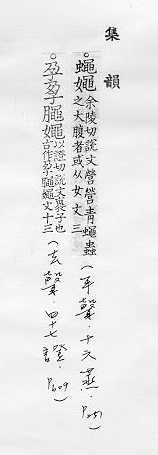 集韻
。蠅𧕴余陵切說文營營青蠅蟲
之大腹者或从女文三
(平聲.十六蒸.P.251)
。孕𡥧䏈㛺以證切說文褱子也
古作𡥧䏈㛺文十三
(去聲.四十七證.P.609)